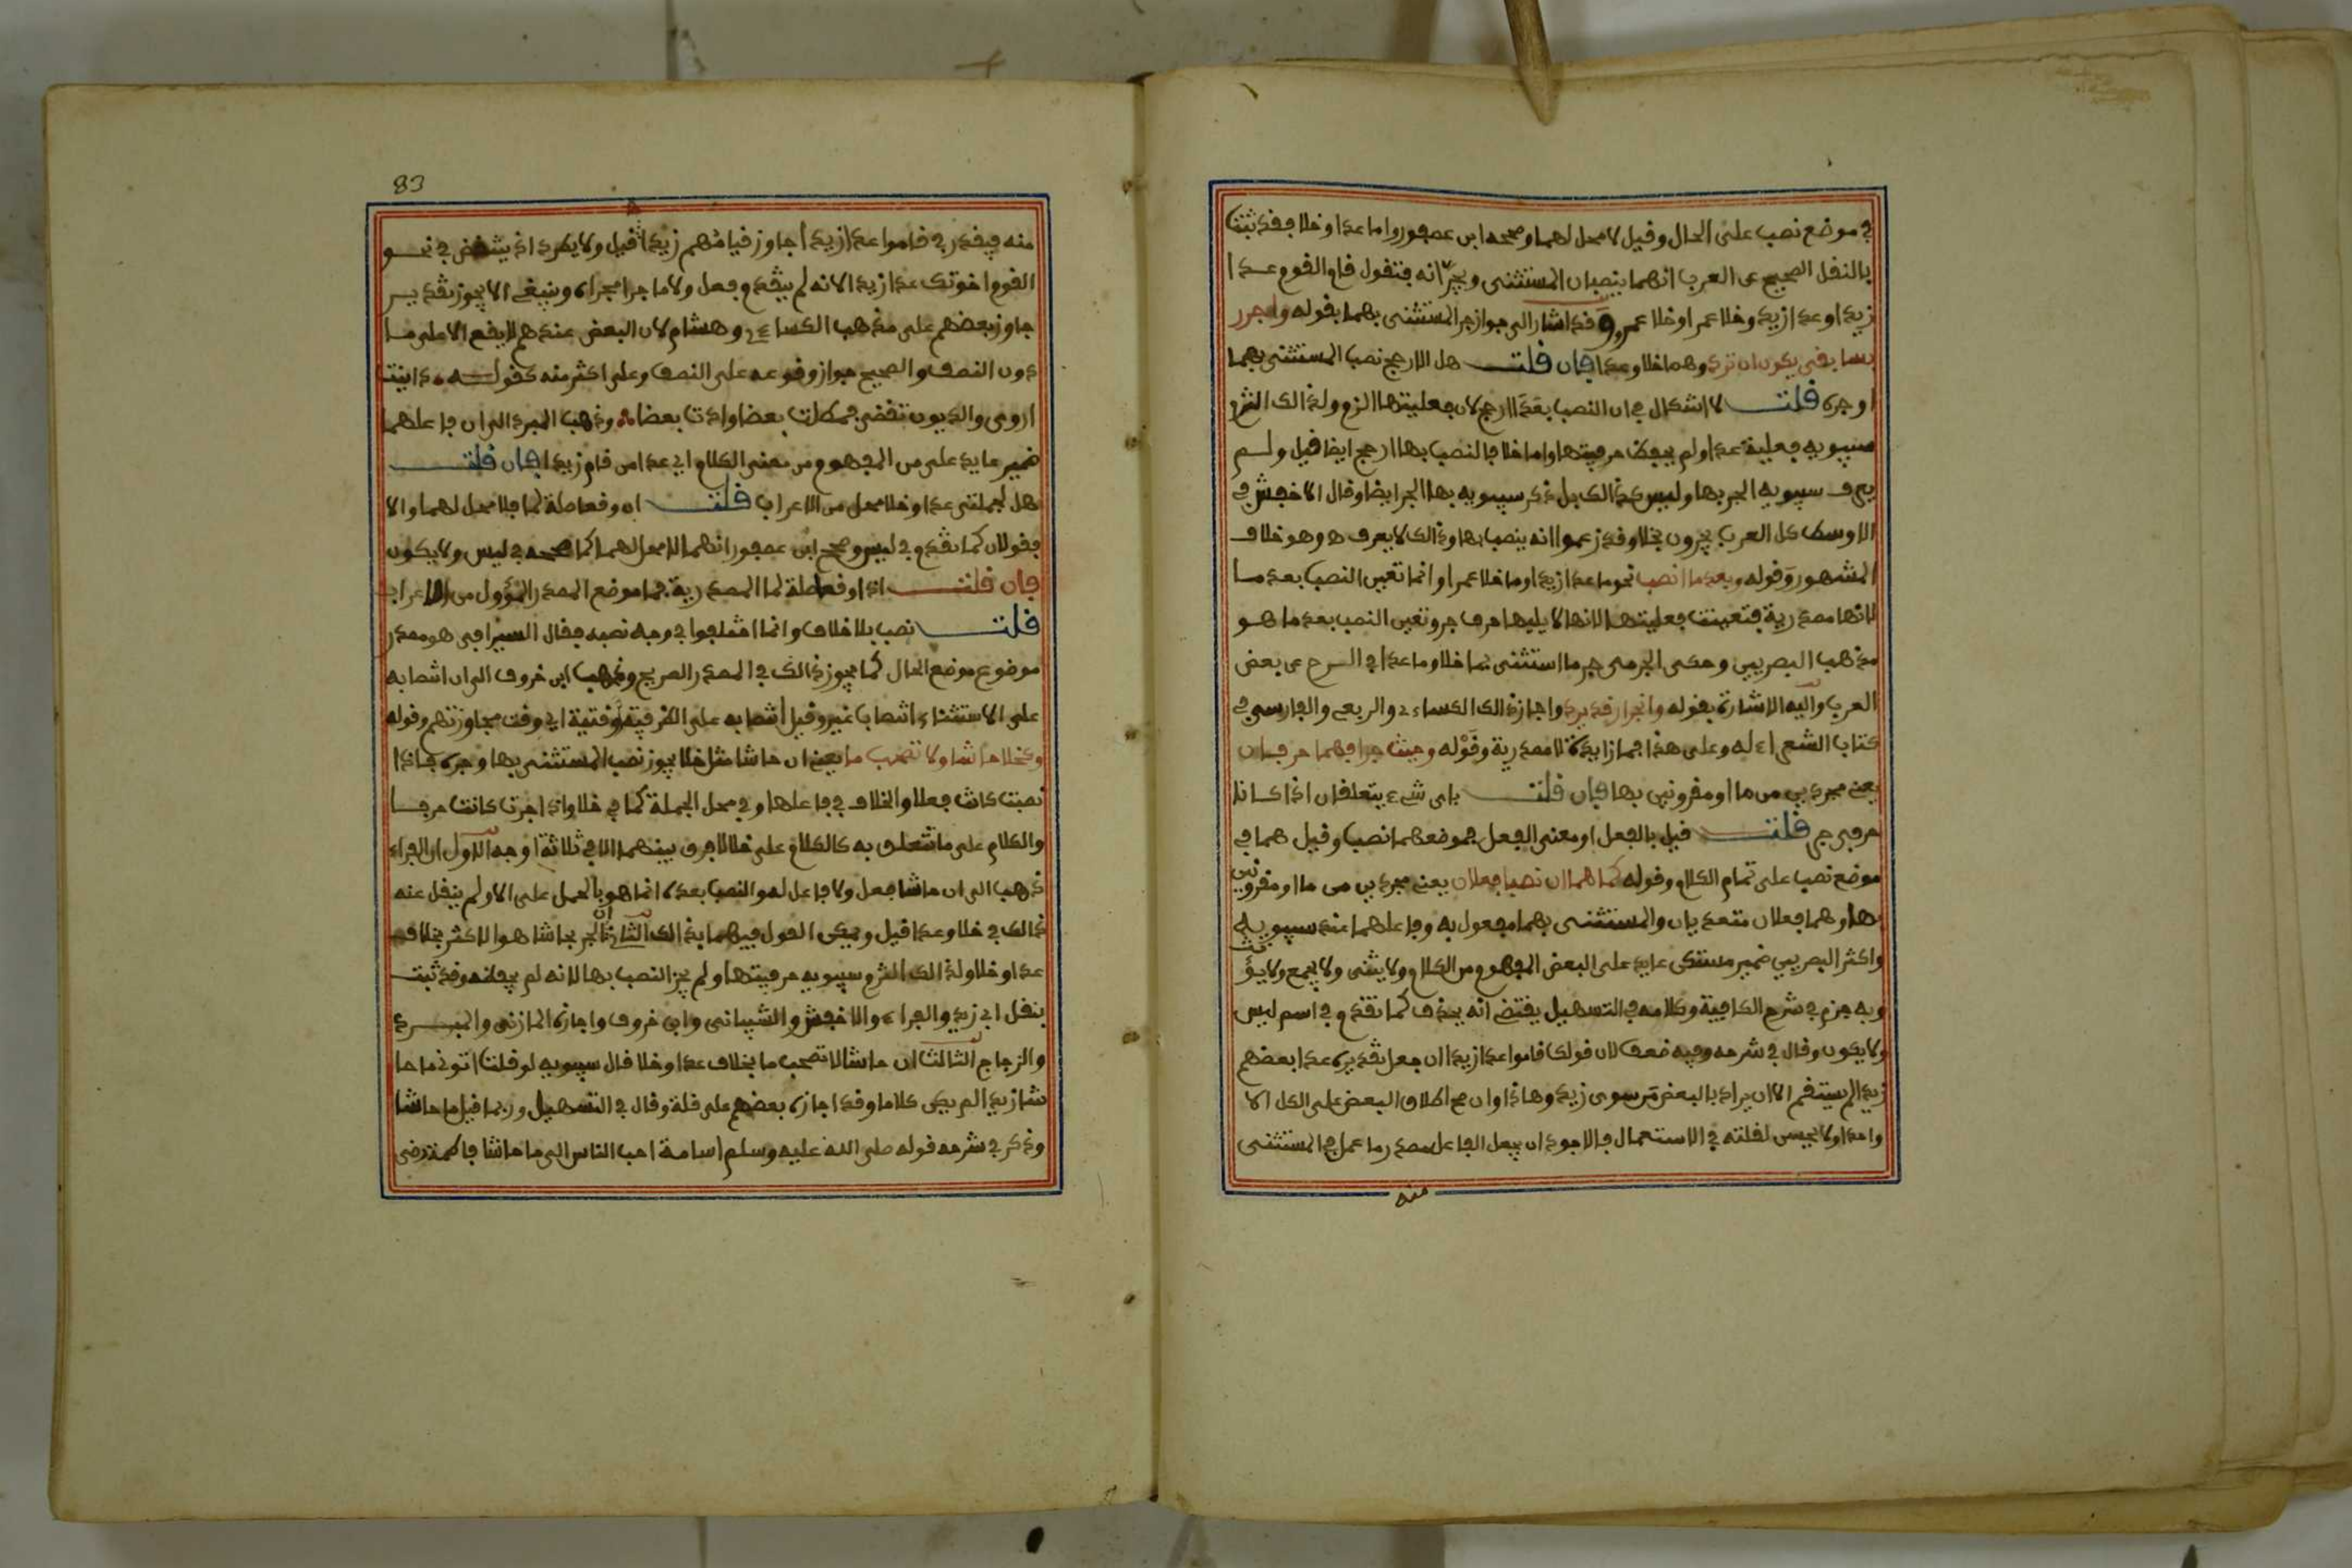 في موضع نصب على الحال وقيل لا محل لهما وصححه ابن عصفور واما عدا وخلا فقد ثبت
بالنقل الصحيح عن العرب انهما ينصبان المستثنى ويجرانه فتقول قام القوم عدا
زيدا وعدا زيد وخلا عمرا وخلا عمرو وقد اشار الى جواز جر المستثنى بهما بقوله واجرر
بسابقي يكون ان ترد وهما خلا وعدا فان قلت هل الارجح نصب المستثنى بهما
او جره قلت لا اشكال في ان النصب بعدا ارجح لان فعليتها الزم ولذالك التزم
سيبويه فعلية عدا ولم يحفظ حرفيتها واما خلا فالنصب بها ارجح ايضا قيل ولم
يعرف سيبويه الجر بها وليس كذالك بل ذكر سيبويه بها الجر ايضا وقال الاخفش في
الاوسط كل العرب يجرون بخلا وقد زعموا انه ينصب بها وذالك لا يعرف ه وهو خلاف
المشهور وقوله وبعد ما انصب نحو ما عدا زيدا وما خلا عمرا وانما تعين النصب بعد ما
لانها مصدرية فتعينت فعليتها لانها لا يليها حرف جر وتعين النصب بعد ما هو
مذهب البصريين وحكى الجرمي جر ما استثني بما خلا وما عدا في الشرح عن بعض
العرب واليه الاشارة بقوله وانجرار قد يرد واجاز ذالك الكساءي والربعي والفارسي في
كتاب الشعر له وعلى هذا فما زايدة لا مصدرية وقوله وحيث جرا فهما حرفان
يعني مجردين من ما او مقرونين بها فان قلت باى شيء يتعلقان اذا كانا
حرفي جر قلت قيل بالفعل او معنى الفعل فموضعهما نصب وقيل هما في
موضع نصب على تمام الكلام وقوله كما هما ان نصبا فعلان يعني مجردين من ما او مقرونين
بها وهما فعلان متعديان والمستثنى بهما مفعول به وفاعلهما عند سيبويه
واكثر البصريين ضمير مستكن عايد على البعض المفهوم من الكلام ولا يثنى ولا يجمع ولا يؤنث
وبه جزم في شرح الكافية وكلامه في التسهيل يقتضي انه يحذف كما تقدم في اسم ليس
ولا يكون وقال في شرحه وفيه ضعف لان قولك قاموا عدا زيدا ان جعل تقديره عدا بعضهم
زيدا لم يستقم الا ان يراد بالبعض من سوى زيد وهاذا وان صح اطلاق البعض على الكل الا
واحدا ولا يحسن لقلته في الاستعمال فالاجود ان يجعل الفاعل مصدر ما عمل في المستثنى
منه
83
منه فيقدر في قاموا عدا زيدا جاوز قيامهم زيدا قيل ولا يطرد اذ ينتقض في نحو
القوم اخوتك عدا زيدا لانه لم يتقدم فعل ولا ما جرا مجراه وينبغي الا يجوز تقدير
جاوز بعضهم على مذهب الكساءي وهشام لان البعض عندهم لا يقع الا على ما
دون النصف والصحيح جواز وقوعه على النصف وعلى اكثر منه كقوله داينت
اروى والديون تقضى فمطلت بعضا وادت بعضا وذهب المبرد الى ان فاعلهما
ضمير عايد على من المفهوم من معنى الكلام اي عدا من قام زيدا فان قلت
هل لجملتي عدا وخلا محل من الاعراب قلت ان وقعا صلة لما فلا محل لهما والا
فقولان كما تقدم في ليس وصحح ابن عصفور انهما لا محل لهما كما صححه في ليس ولا يكون
فان قلت اذا وقعا صلة لما المصدرية فما موضع المصدر المؤول من الاعراب
قلت نصب بلا خلاف وانما اختلفوا في وجه نصبه فقال السيرافي هو مصدر
موضوع موضع الحال كما يجوز ذالك في المصدر الصريح وذهب ابن خروف الى ان انتصابه
على الاستثناء انتصاب غير وقيل انتصابه على الظرفية وقتية اي وقت مجاوزتهم وقوله
وكخلا حاشا ولا تصحب ما يعني ان حاشا مثل خلا يجوز نصب المستثنى بها وجره فاذا
نصبت كانت فعلا والخلاف في فاعلها وفي محل الجملة كما في خلا واذا جرت كانت حرفا
والكلام على ما تتعلق به كالكلام على خلا لا فرق بينهما الا في ثلاثة اوجه الاول ان الفراء
ذهب الى ان حاشا فعل ولا فاعل له والنصب بعده انما هو بالحمل على الا ولم ينقل عنه
ذالك في خلا وعدا قيل ويمكن القول فيهما بذالك الثاني ان الجر بحاشا هو الاكثر بخلاف
عدا وخلا ولذالك التزم سيبويه حرفيتها ولم يجز النصب بها لانه لم يحفظه وقد ثبت
بنقل ابي زيد والفراء والاخفش والشيباني وابن خروف واجازه المازني والمبرد
والزجاج الثالث ان حاشا لا تصحب ما بخلاف عدا وخلا قال سيبويه لو قلت اتوني ما حا
شا زيدا لم يكن كلاما وقد اجازه بعضهم على قلة وقال في التسهيل وربما قيل ما حاشا
وذكر في شرحه قوله صلى الله عليه وسلم اسامة احب الناس الى ما حاشا فاطمة رضي